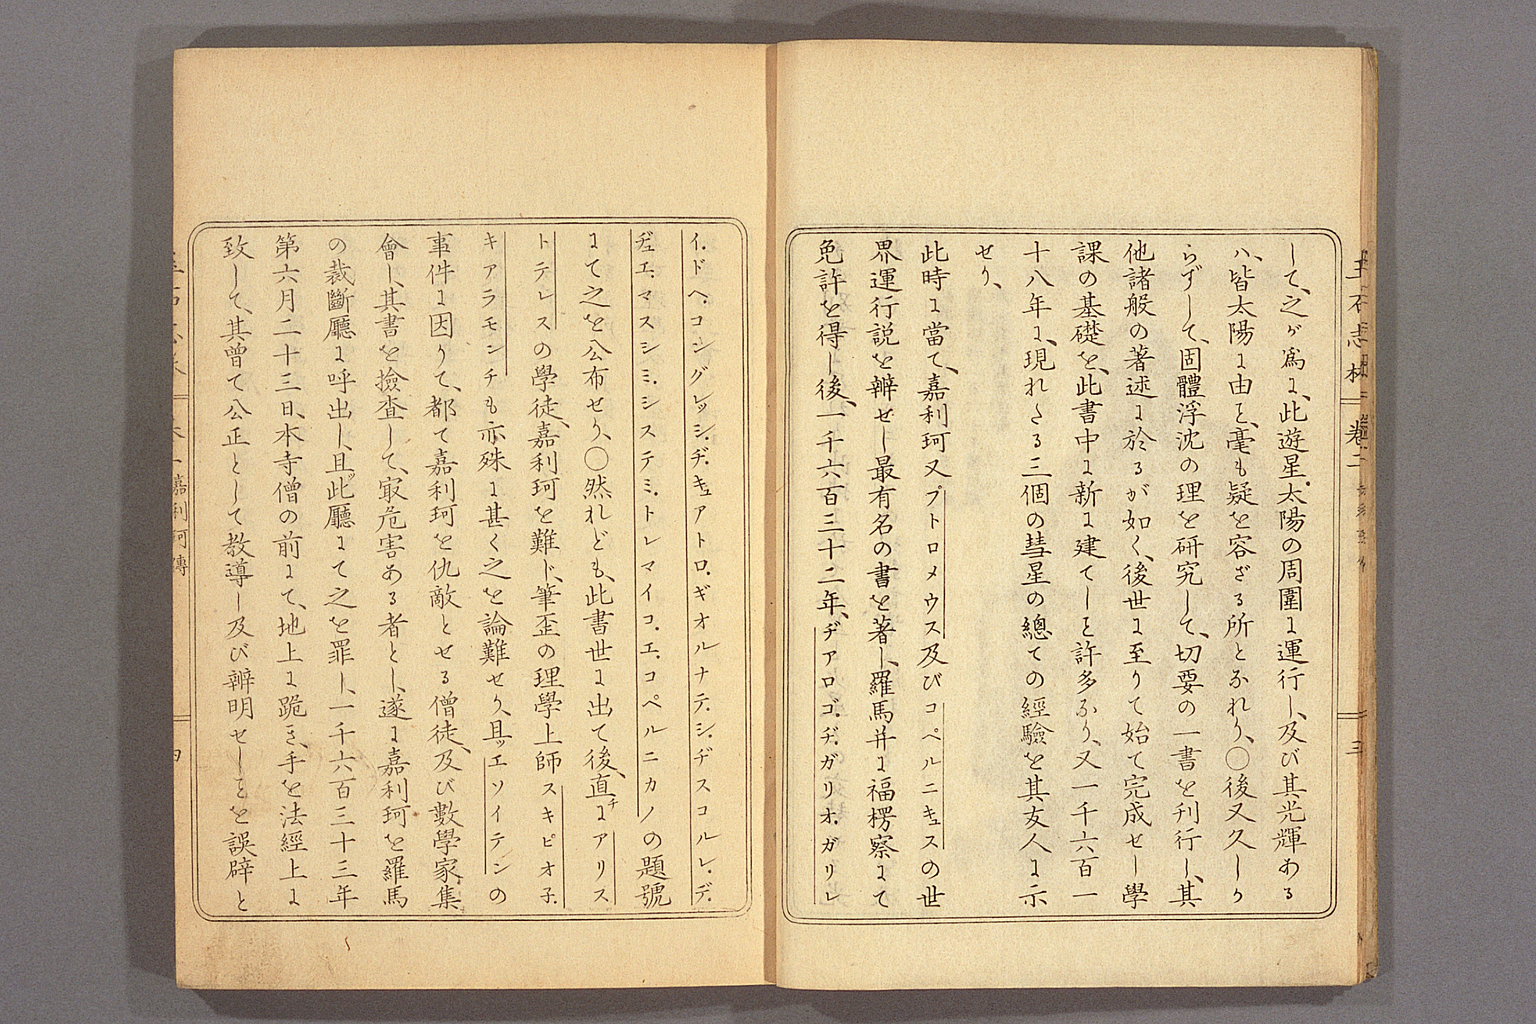 して、之が爲に、此遊星太陽の周圍に運行し、及び其光輝ある
ハ、皆太陽に由を、毫も疑を容ざる所となれり、〇後又久しか
らずして、固體浮沈の理を研究して、切要の一書を刊行し、其
他諸般の著述に於るが如く、後世に至りて始て完成せし學
課の基礎を、此書中に新に建てしと許多なり、又一千六百一
十八年に、現れたる三個の彗星の總ての經驗を其友人に示
せり、
此時に當て、嘉利珂又プトロメウス及びコペルニキュスの世
界運行説を辨せし最有名の書を著し、羅馬并に福楞察にて
免許を得し後、一千六百三十二年、ヂアロゴ、ヂ、ガリオ、ガリレ
イ、ドヘ、コングレッシ、ヂ、キュアトロ、ギオルナテ、シ、ヂスコルレ、デ、
ヂュエ、マスシミ、システミ、トレマイコ、エ、コペルニカノの題號
にて之を公布せり、〇然れども、此書世に出て後、直にアリス
トテレスの學徒、嘉利珂を難じ、筆歪の理學上師スキピオ子、
キアラモンチも亦殊に甚く之を論難せり、且ツエソイテンの
事件に因りて、都て嘉利珂を仇敵とせる僧徒、及び數學家、集
會し、其書を撿査して、㝡危害ある者とし、遂に嘉利珂を羅馬
の裁斷廳に呼出し、且此廳にて之を罪し、一千六百三十三年
第六月二十三日、本寺僧の前にて、地上に跪き、手を法經上に
致して、其曽て公正として教導し及び辨明せしことを誤辟と
玉石志林
卷二
三
嘉利珂傳
四